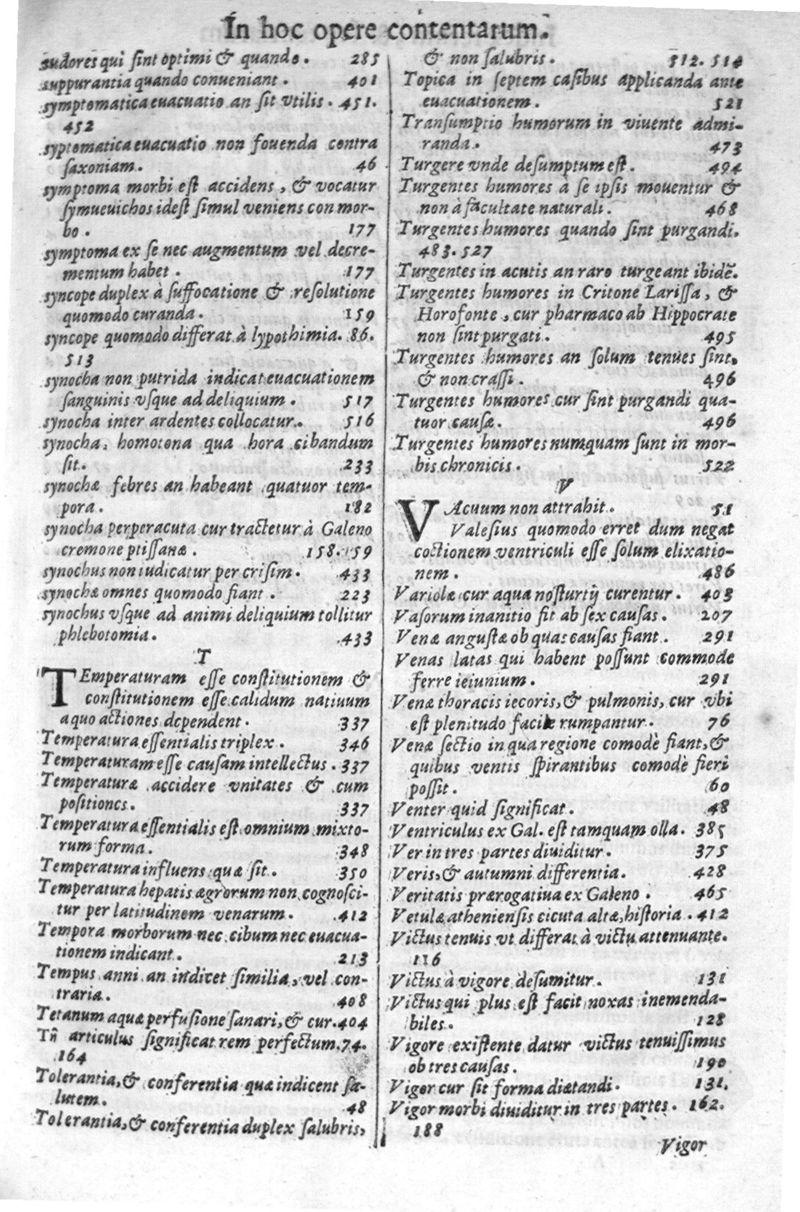 In hoc opere contentarum.
sudores qui sint optimi & quando. 285
suppurantia quando conueniant. 401
symptomatica euacuatio an sit vtilis. 451.
452
syptomatica euacuatio non fouenda contra
saxoniam. 46
symptoma morbi est accidens, & vocatur
symueuichos idest simul veniens con mor-
bo. 177
symptoma ex se nec augmentum vel decre-
mentum habet. 177
syncope duplex à suffocatione & resolutione
quomodo curanda. 159
syncope quomodo differat à lypothimia. 86.
513
synocha non putrida indicat euacuationem
sanguinis vsque ad deliquium. 517
synocha inter ardentes collocatur. 516
synocha, homotona qua hora cibandum
sit. 233
synochæ febres an habeant quatuor tem-
pora. 182
synocha perperacuta cur tractetur à Galeno
cremone ptissanæ. 158.159
synochus non iudicatur per crisim. 433
synochæ omnes quomodo fiant. 223
synochus vsque ad animi deliquium tollitur
phlebotomia. 433
T
TEmperaturam esse constitutionem &
constitutionem esse calidum natiuum
a quo actiones dependent. 337
Temperatura essentialis triplex. 346
Temperaturam esse causam intellectus. 337
Temperaturæ accidere vnitates & cum
positiones. 337
Temperatura essentialis est omnium mixto-
rum forma. 348
Temperatura influens quæ sit. 350
Temperatura hepatis ægrorum non cognosci-
tur per latitudinem venarum. 412
Tempora morborum nec cibum nec euacua-
tionem indicant. 213
Tempus anni an indicet similia, vel con-
traria. 408
Tetanum aquæ perfusione sanari, & cur. 404
Tñ articulus significat rem perfectum. 74.
164
Tolerantia, & conferentia quæ indicent sa-
lutem. 48
Tolerantia, & conferentia duplex salubris,
& non salubris. 512. 514
Topica in septem casibus applicanda ante
euacuationem. 521
Transumptio humorum in viuente admi-
randa. 473
Turgere vnde desumptum est. 494
Turgentes humores a se ipsis mouentur &
non à facultate naturali. 468
Turgentes humores quando sint purgandi.
483. 527
Turgentes in acutis an raro turgeant ibidẽ.
Turgentes humores in Critone Larissa, &
Horofonte, cur pharmaco ab Hippocrate
non sint purgati. 495
Turgentes humores an solum tenues sint,
& non crassi. 496
Turgentes humores cur sint purgandi qua-
tuor causæ. 496
Turgentes humores numquam sunt in mor-
bis chronicis. 522
V
VAcuum non attrahit. 51
Valesius quomodo erret dum negat
coctionem ventriculi esse solum elixatio-
nem. 486
Variolæ cur aqua nosturtij curentur. 403
Vasorum inanitio fit ab sex causas. 207
Venæ angustæ ob quas causas fiant. 291
Venas latas qui habent possunt commode
ferre ieiunium. 291
Venæ thoracis iecoris, & pulmonis, cur vbi
est plenitudo facile rumpantur. 76
Venæ sectio in qua regione comodè fiant, &
quibus ventis spirantibus comodè fieri
possit. 60
Venter quid significat. 48
Ventriculus ex Gal. est tamquam olla. 385
Ver in tres partes diuiditur. 375
Veris, & autumni differentia. 428
Veritatis prærogatiua ex Galeno. 465
Vetulæ atheniensis cicuta altæ, historia. 412
Victus tenuis vt differat à victu attenuante.
116
Victus à vigore desumitur. 131
Victus qui plus est facit noxas inemenda-
biles. 128
Vigore existente datur victus tenuissimus
ob tres causas. 190
Vigor cur sit forma diætandi. 131.
Vigor morbi diuiditur in tres partes. 162.
188
Vigor